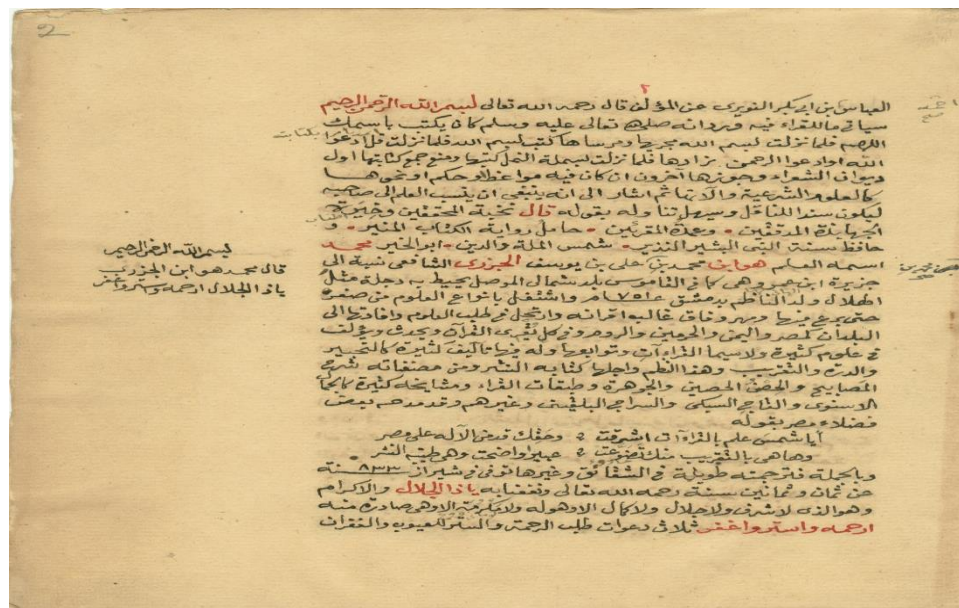 2
٢
العباس بن ابى بكر النويرى عن المؤلف قال رحمه الله تعالى بسم الله الرحمن الرحيم
سياتى ما للقراء فيه وروى انه صلى الله تعالى عليه وسلم كان يكتب باسمك
اللهم فلما نزلت بسم الله مجريها ومرساها كتب بسم الله فلما نزلت قل ادعوا
الله او ادعوا الرحمن زادها فلما نزلت بسملة النمل كتبها ومنع جمع كتابتها اول
ديوان الشعراء وجوزها آخرون ان كان فيه مواعظ او حكم ونحوها
كالعلوم الشرعية والآتها ثم اشار الى انه ينبغى ان ينسب العلم الى صاحبه
ليكون سندا للناقل وسهل تناوله بقوله قال نخبة المحققين وخيرة
الجهابذة المدققين وعمدة المقرئين حامل رواية الكتاب المنير و
حافظ سنة النبى البشير النذير شمس الملة والدين ابو الخير محمد
اسمه العلم هو ابن محمد بن على بن يوسف الجزرى الشافعى نسبة الى
جزيرة ابن عمر وهى كما فى القاموس بلد شمالى الموصل يحيط به دجلة مثل
الهلال ولد الناظم بدمشق ٧٥١ عام واشتغل بانواع العلوم من صغره
حتى برع فيها ومهر وفاق غالب اقرانه وارتحل فى طلب العلوم وافادتها الى
البلدان كمصر واليمن والحرمين والروم وفى كل يقرى القرآن ويحدث ويؤلف
فى علوم كثيرة ولا سيما القراءات وتوابعها وله فيها تآليف كثيرة كالتحبير
والدرة والتقريب وهذا النظم واجلها كتابه النشر ومن مصنفاته شرح
المصابيح والحصن الحصين والجوهرة وطبقات القراء ومشايخه كثيرة كالجمال
الاسنوى والتاج السبكى والسراج البلقينى وغيرهم وقد مدحه بعض
فضلاء مصر بقوله
أيا شمس علم بالقراءات اشرقت وحقك قد من الآله على مصر
وها هى بالتقريب منك تضوعت عبيرا واضحت وهى طيبة النشر
وبالجملة فترجمته طويلة فى الشقائق وغيرها توفى فى شيراز ٨٣٣ سنة
عن ثمان وثمانين سنة رحمه الله تعالى ونفعنا به ياذا الجلال والاكرام
وهو الذى لا شرف ولا جلال ولا كمال الا وهو له ولا مكرمة الا وهى صادرة منه
ارحمه واستر واغفر ثلاث دعوات طلب الرحمة والستر للعيوب والغفران
بسم الله الرحمن الرحيم
قال محمد هو ابن الجزرى
ياذا الجلال ارحمه واستر واغفر